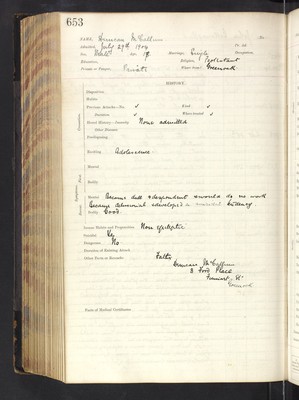 653
NAME, Duncan McCallum No.
Admitted, July 29th 1904
Age, 17 Marriage, Single Occupation,
Education, Religion, Protestant
Private or Pauper, Private Whence bro't, Greenock
HISTORY.
Disposition,
Habits
Previous Attacks—No. ✓ Kind ✓
Duration ✓ Where treated ✓
Family History—Insanity, None admitted
Other Diseases
Predisposing,
Exciting Adolescence
Mental
Bodily
Mental Became dull & despondent & would do no work
became delusional developed a suicidal tendency
Bodily Good.
Insane Habits and Propensities, Non epileptic
Suicidal, Yes
Dangerous, No
Duration of Existing Attack
Other Facts or Remarks Father
Duncan McCallum
3 Ford Place
Greenock
Facts of Medical Certificates